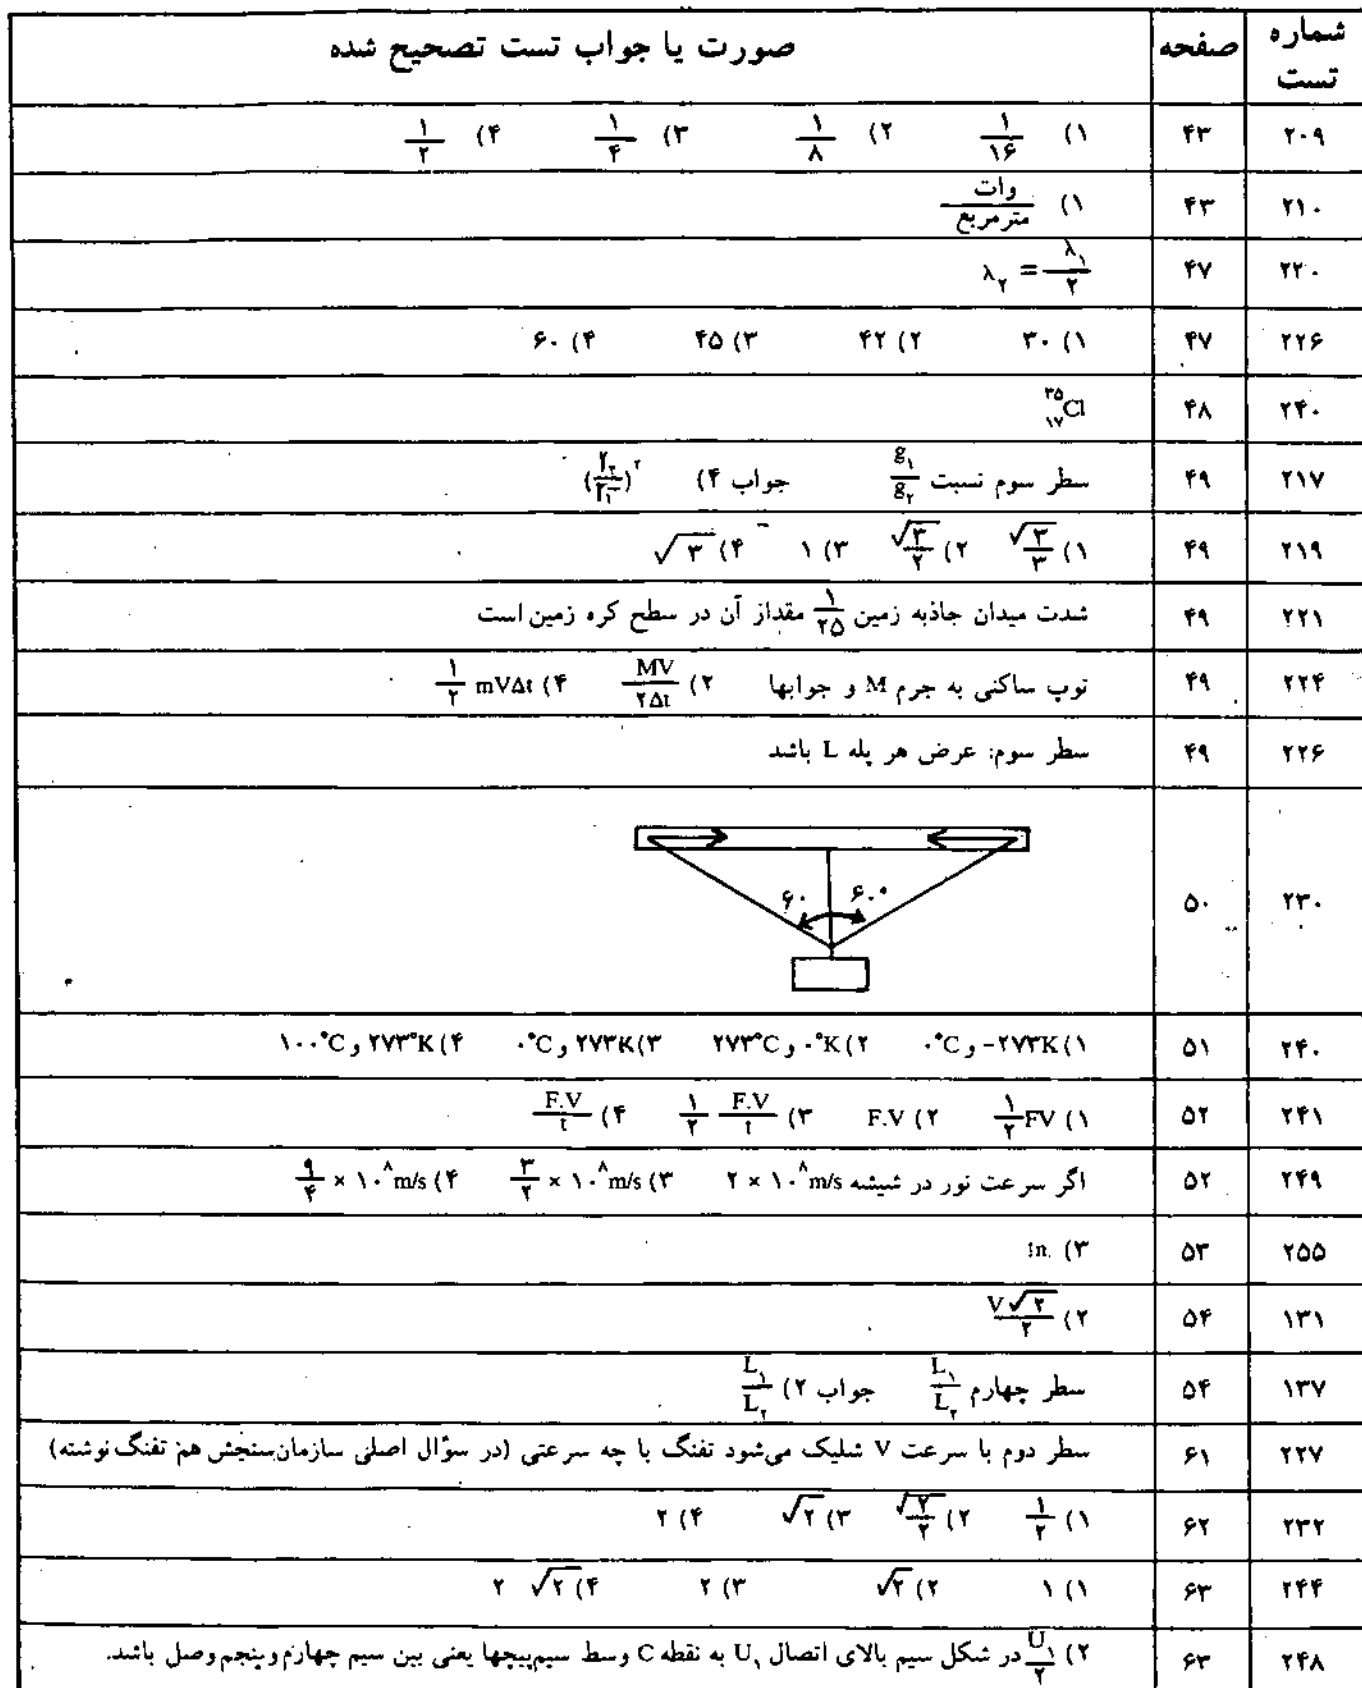 شماره تست | صفحه | صورت یا جواب تست تصحیح شده
۲۰۹ | ۴۳ | ۱) ۱/۱۶ ۲) ۱/۸ ۳) ۱/۴ ۴) ۱/۲
۲۱۰ | ۴۳ | ۱) وات/مترمربع
۲۲۰ | ۴۷ | λ₂ = λ₁/۲
۲۲۶ | ۴۷ | ۱) ۳۰ ۲) ۴۲ ۳) ۴۵ ۴) ۶۰
۲۴۰ | ۴۸ | ³⁵₁₇Cl
۲۱۷ | ۴۹ | سطر سوم نسبت g₁/g₂ جواب ۴) (r₂/r₁)²
۲۱۹ | ۴۹ | ۱) √۳/۳ ۲) √۳/۲ ۳) ۱ ۴) √۳
۲۲۱ | ۴۹ | شدت میدان جاذبه زمین ۱/۲۵ مقداز آن در سطح کره زمین است
۲۲۴ | ۴۹ | توپ ساکنی به جرم M و جوابها ۲) MV/۲Δt ۴) ۱/۲ mVΔt
۲۲۶ | ۴۹ | سطر سوم: عرض هر پله L باشد
۲۳۰ | ۵۰ | ۶۰ ۶۰°
۲۴۰ | ۵۱ | ۱) -۲۷۳K و ۰°C ۲) ۰°K و ۲۷۳°C ۳) ۲۷۳K و ۰°C ۴) ۲۷۳°K و ۱۰۰°C
۲۴۱ | ۵۲ | ۱) ۱/۲ FV ۲) F.V ۳) ۱/۲ F.V/t ۴) F.V/t
۲۴۹ | ۵۲ | اگر سرعت نور در شیشه ۲ × ۱۰^۸ m/s ۳) ۳/۲ × ۱۰^۸ m/s ۴) ۹/۴ × ۱۰^۸ m/s
۲۵۵ | ۵۳ | ۳)
۱۳۱ | ۵۴ | ۲) V√۲/۲
۱۳۷ | ۵۴ | سطر چهارم L₁/L₂ جواب ۲) L₁/L₂
۲۲۷ | ۶۱ | سطر دوم با سرعت V شلیک می‌شود تفنگ با چه سرعتی (در سؤال اصلی سازمان‌سنجش هم تفنگ نوشته)
۲۳۲ | ۶۲ | ۱) ۱/۲ ۲) √۲/۲ ۳) √۲ ۴) ۲
۲۴۴ | ۶۳ | ۱) ۱ ۲) √۲ ۳) ۲ ۴) ۲√۲
۲۴۸ | ۶۳ | ۲) U₁/۲ در شکل سیم بالای اتصال U₁ به نقطه C وسط سیم‌پیچها یعنی بین سیم چهارم وپنجم وصل باشد.